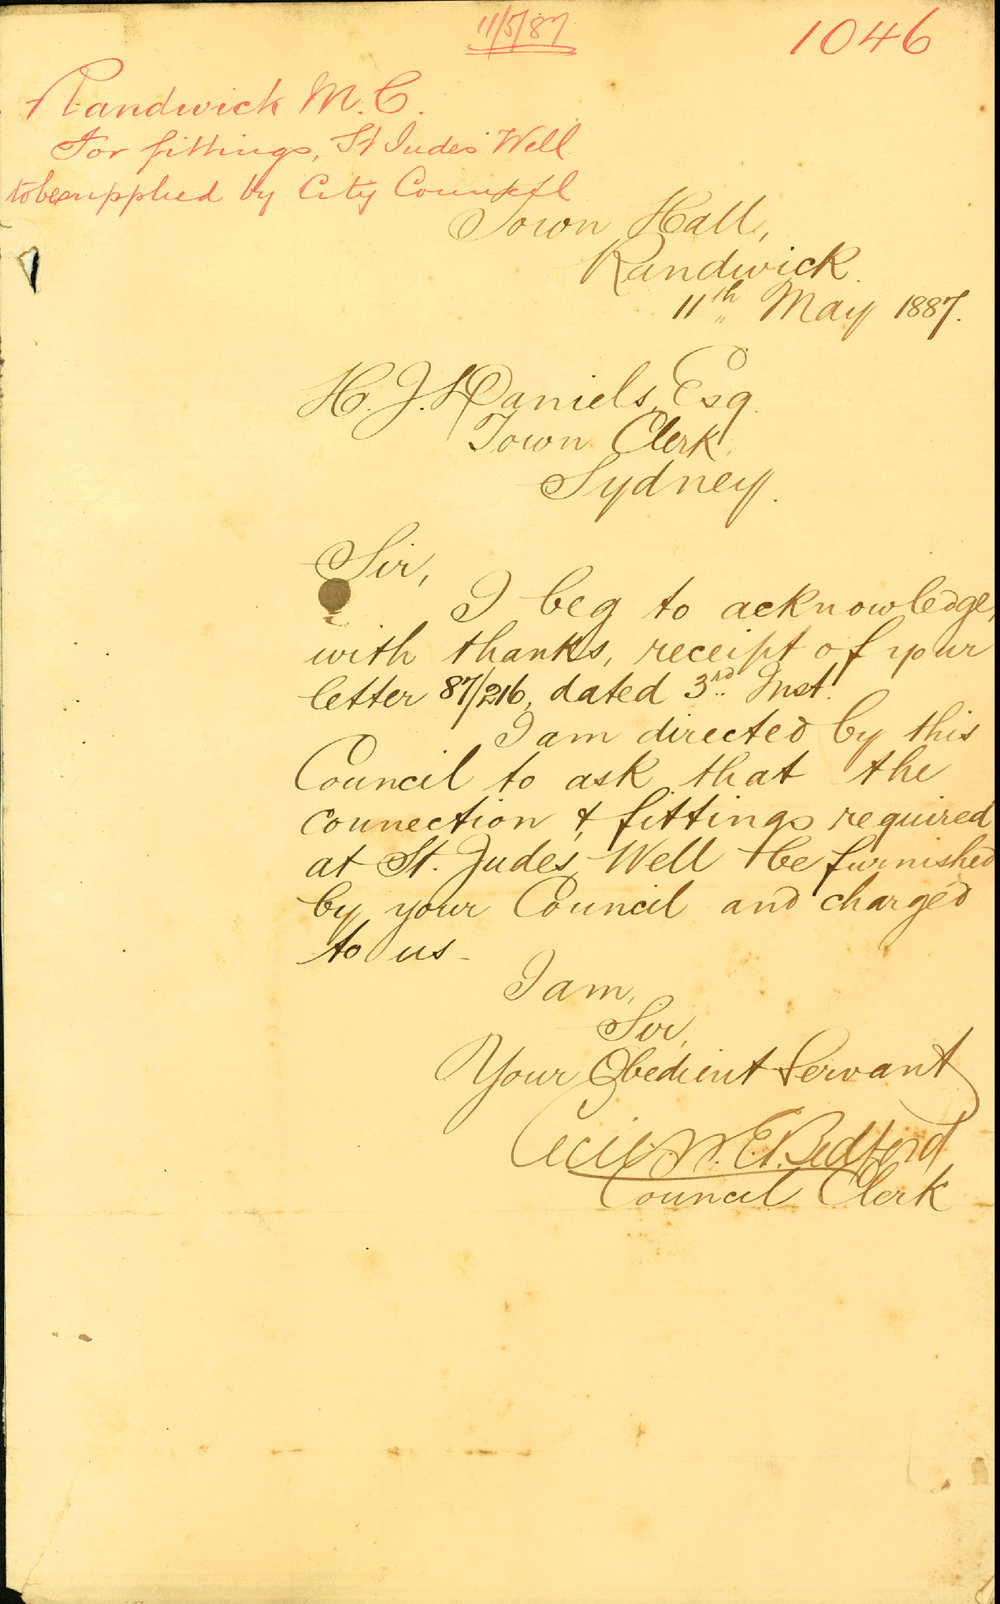 11/5/87
1046
Randwick M.C.
For fittings, St Judes Well
to be supplied by City Council
Town Hall,
Randwick.
11th May 1887.
H. J. Daniels, Esq.
Town Clerk,
Sydney.
Sir,
I beg to acknowledge,
with thanks, receipt of your
letter 87/216, dated 3rd Inst.
I am directed by this
Council to ask that the
connection & fittings required
at St. Jude's Well be furnished
by your Council and charged
to us -
I am,
Sir,
Your Obedient Servant
Cecil W. E. Bedford
Council Clerk